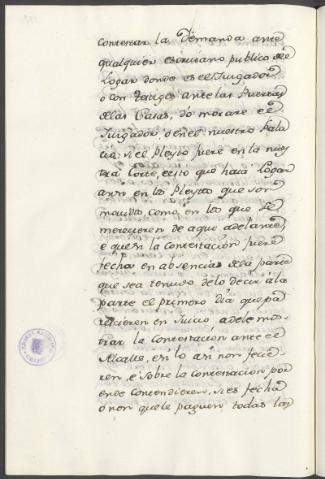 contestar la Demanda ante
qualquier escrivano publico del
Logar donde es el Juzgador
o con testigos ante las Puertas
de las Casas, dó morare el
Juzgador o en el nuestro Pala
cio, si el Pleyto fuere en la nues
tra Corte, esto que haia Logar
assi en los Pleytos que son
movidos como, en los que se
movieren de aqui adelante,
e que si la contestación fuere
fecha en absencia de la parte
que sea tenudo de lo decir á la
parte el primero dia que pa
recieren en Juicio a de le mos
trar la contestacion ante el
Alcalle, en lo asi non ficie-
ren, e sobre la contestacion por
ende contendieren, si es fecha
o non que le paguen todas las